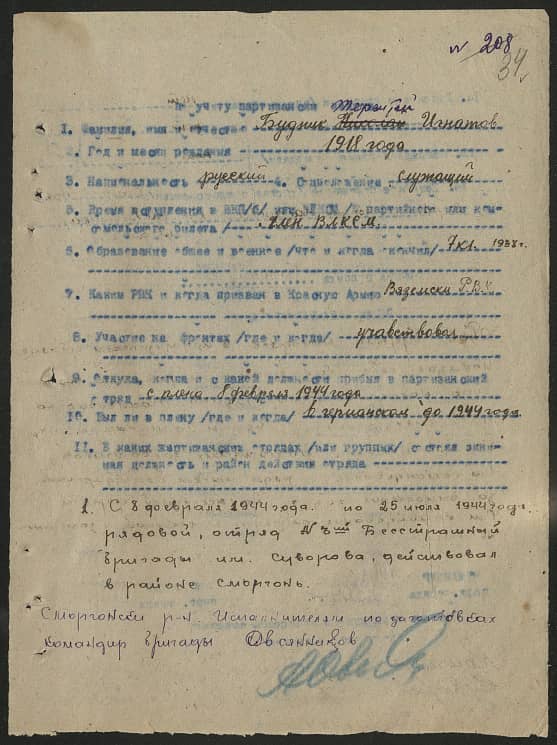 № 208
34
по учету партизанск
Терентий
1. Фамилия, имя и отчество Будник Игнатов
2. Год и место рождения 1918 года
3. Национальность русский 4. Служащий
5. Время вступления в ВКП/б/ или ВЛКСМ /№ партийного или ком-
сомольского билета/ член ВЛКСМ
6. Образование общее и военное /что и когда окончил/ 7 кл. 193 г.
7. Каким РВК и когда призван в Красную Армию Вяземски Р.В.К
8. Участие на фронтах /где и когда/ учавствовал
9. Откуда, когда и с какой должности прибыл в партизанский
отряд с плена 8 февраля 1944 года
10. Был ли в плену /где и когда/ в германском до 1944 года
11. В каких партизанских отрядах /или группах/ состоял зани-
мая должность и район действия отряда
1. С 8 февраля 1944 года. по 25 июля 1944 года
рядовой, отряд № Бесстрашный
бригады им. Суворова, действовал
в районе Сморгонь.
Сморгонски р-н Исполнителям по заготовках
командир бригады Овсянников